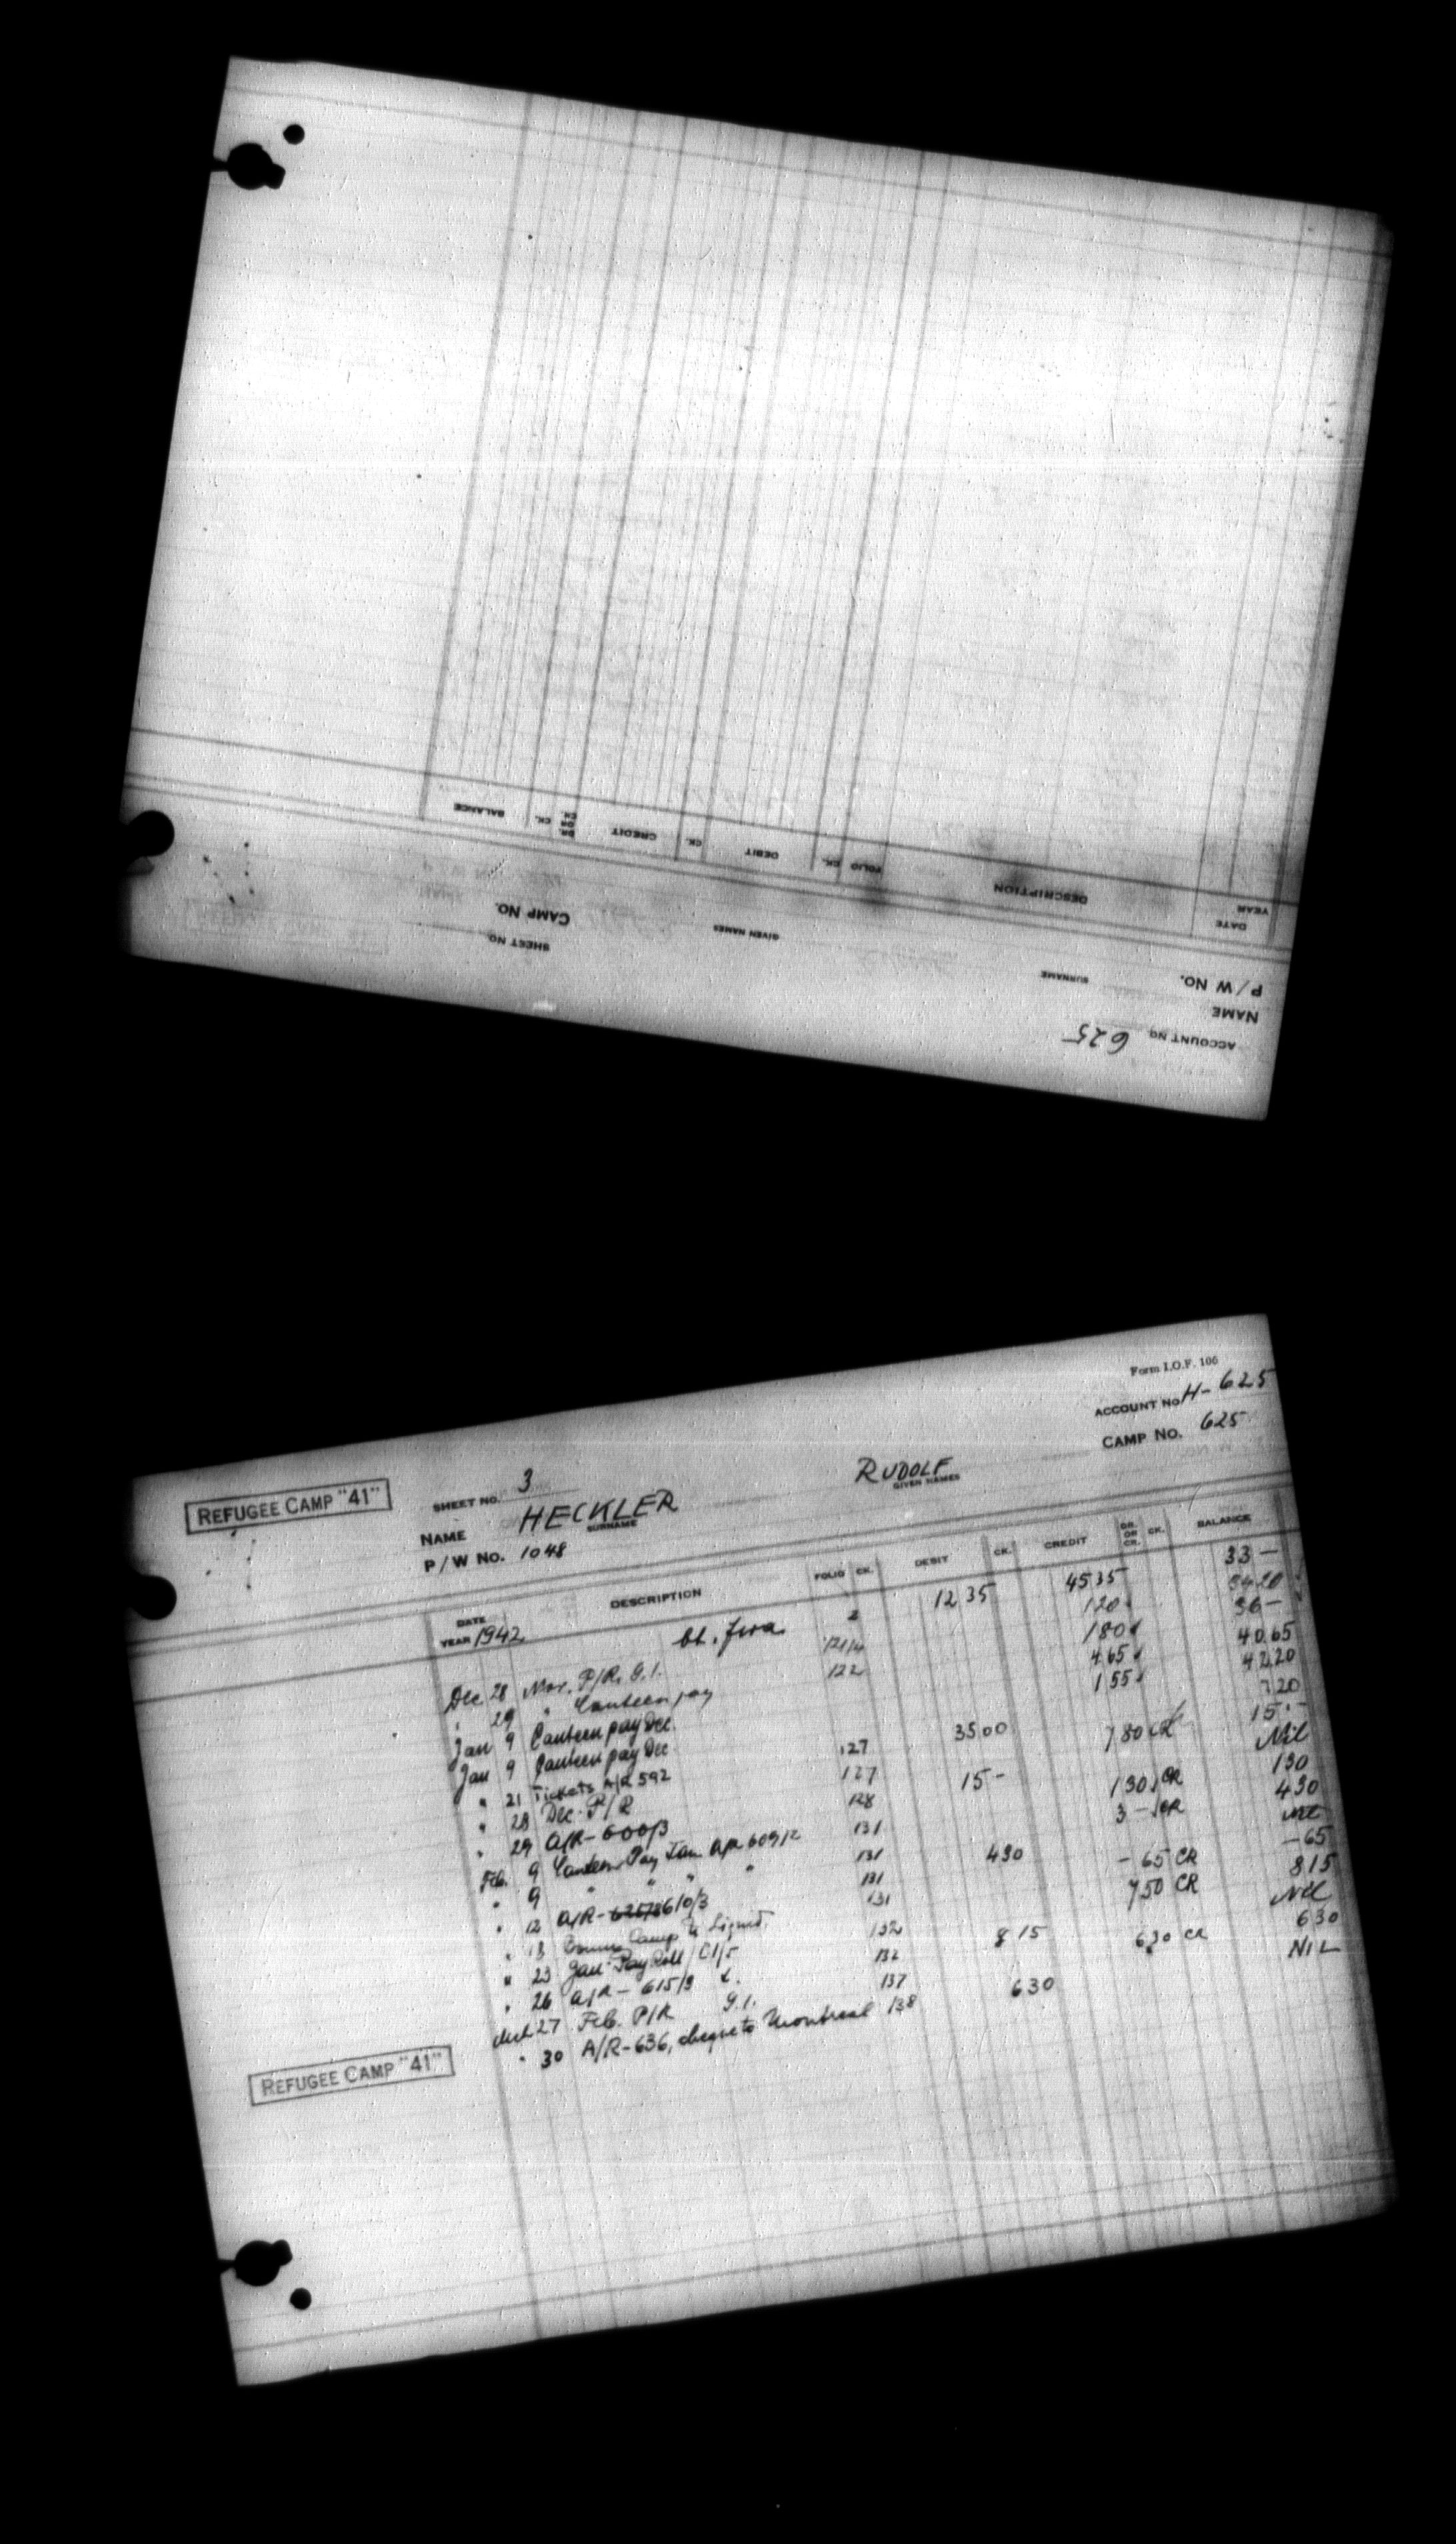 ACCOUNT NO. 625
NAME
P/W NO.
SURNAME
GIVEN NAMES
SHEET NO.
CAMP NO.
DATE YEAR DESCRIPTION FOLIO CK. DEBIT CK. CREDIT DR. OR CR. CK. BALANCE
Form I.O.F. 106
ACCOUNT No H-625
CAMP NO. 625
REFUGEE CAMP "41"
SHEET NO. 3
NAME HECKLER RUDOLF
SURNAME GIVEN NAMES
P/W NO. 1048
DATE DESCRIPTION FOLIO CK. DEBIT CK. CREDIT DR. OR CR. CK. BALANCE
YEAR 1942
12 35 45 35 33 —
Dec 28 Nov. P/R. G.I. 2 1 20 34 20
" 29 " Canteen pay 121/4 1 80 36 —
Jan 9 Canteen pay Dec. 122 4 65 40.65
Jan 9 Canteen pay Dec 1 55 42.20
" 21 Tickets A/R 592 127 35.00 7 20
" 28 Dec. P/R 127 7 80 CR 15 —
" 29 A/R - 600/3 128 15 — Nil
Feb. 9 Canteen Pay Jan A/R 609/2 131 1 30 CR 1 30
" 9 " " " " 131 3 — CR 4 30
" 12 A/R - 610/3 131 4 30 Nil
" 13 Camp Liquid. 131 — 65 CR — 65
" 23 Jan Pay Roll / C1/5 132 7 50 CR 8 15
" 26 A/R - 615/3 132 8 15 Nil
Mch 27 Feb. P/R G.I. 137 6 30 CR 6 30
" 30 A/R - 636, cheque to Montreal 138 6 30 NIL
REFUGEE CAMP "41"